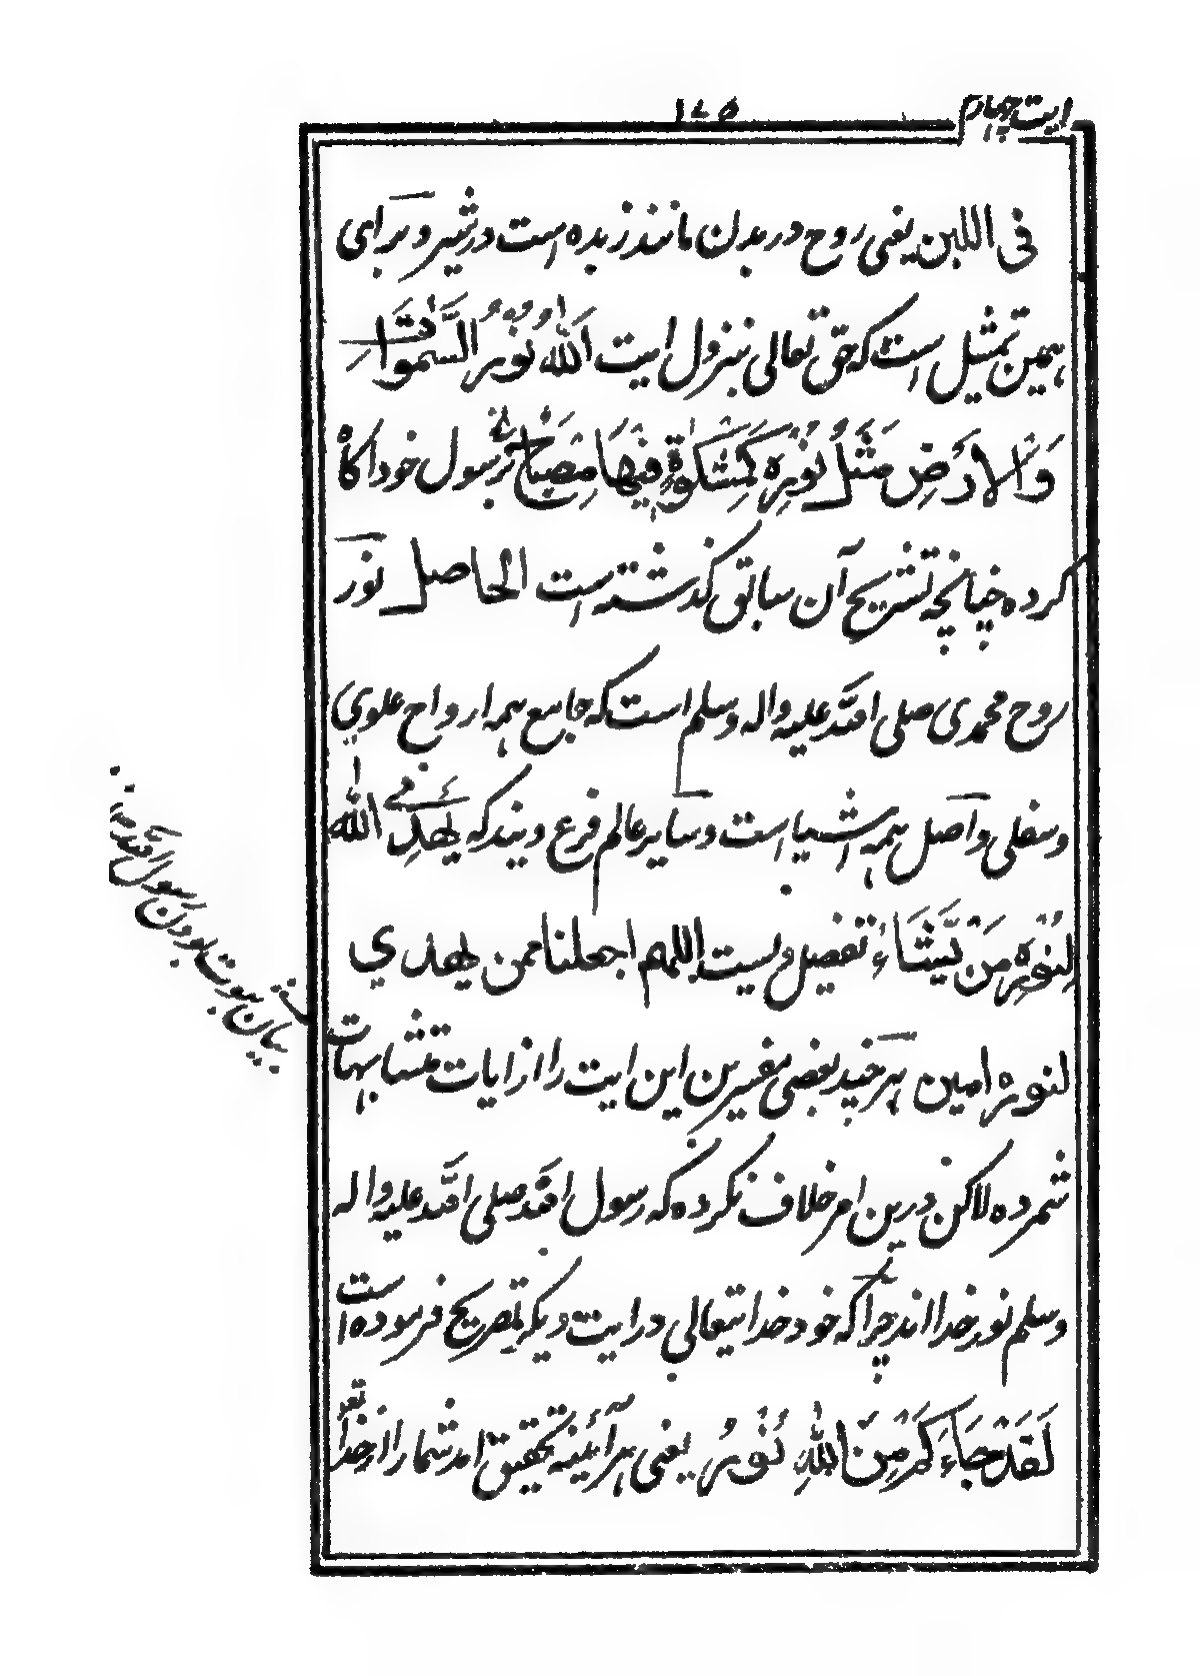 ایت چهارم
۱۷۵
فی اللبن یعنی روح در بدن مانند زبده است در شیر و برای
همین تمثیل است که حق تعالی بنزول ایت اَللّٰهُ نُوْرُ السَّمٰوَاتِ
وَالْاَرْضِ مَثَلُ نُوْرِهٖ كَمِشْكٰوةٍ فِیْهَا مِصْبَاحٌ رسول خود اکاه
کرده چنانچه تشریح آن سابق گذشته است الحاصل نور
روح محمدی صلی الله علیه واله وسلم است که جامع همه ارواح علوي
وسفلی واصل همه اشیا است وسایر عالم فرع ویند که یَهْدِی اللّٰهُ
لِنُوْرِهٖ مَنْ یَّشَاءُ تفصیل ویست اللهم اجعلنا ممن یهدي
لنوره امین هر چند بعضی مفسرین این ایت را از ایات متشابهات
شمرده لاکن درین امر خلاف نکرده که رسول الله صلی الله علیه واله
وسلم نور خدا اند چرا که خود خدا تعالی در ایت دیگر بتصریح فرموده است
لَقَدْ جَاءَكُمْ مِنَ اللّٰهِ نُوْرٌ یعنی هر آئینه تحقیق امد شما را از خدا
بیان ثبوت بودن رسول الله